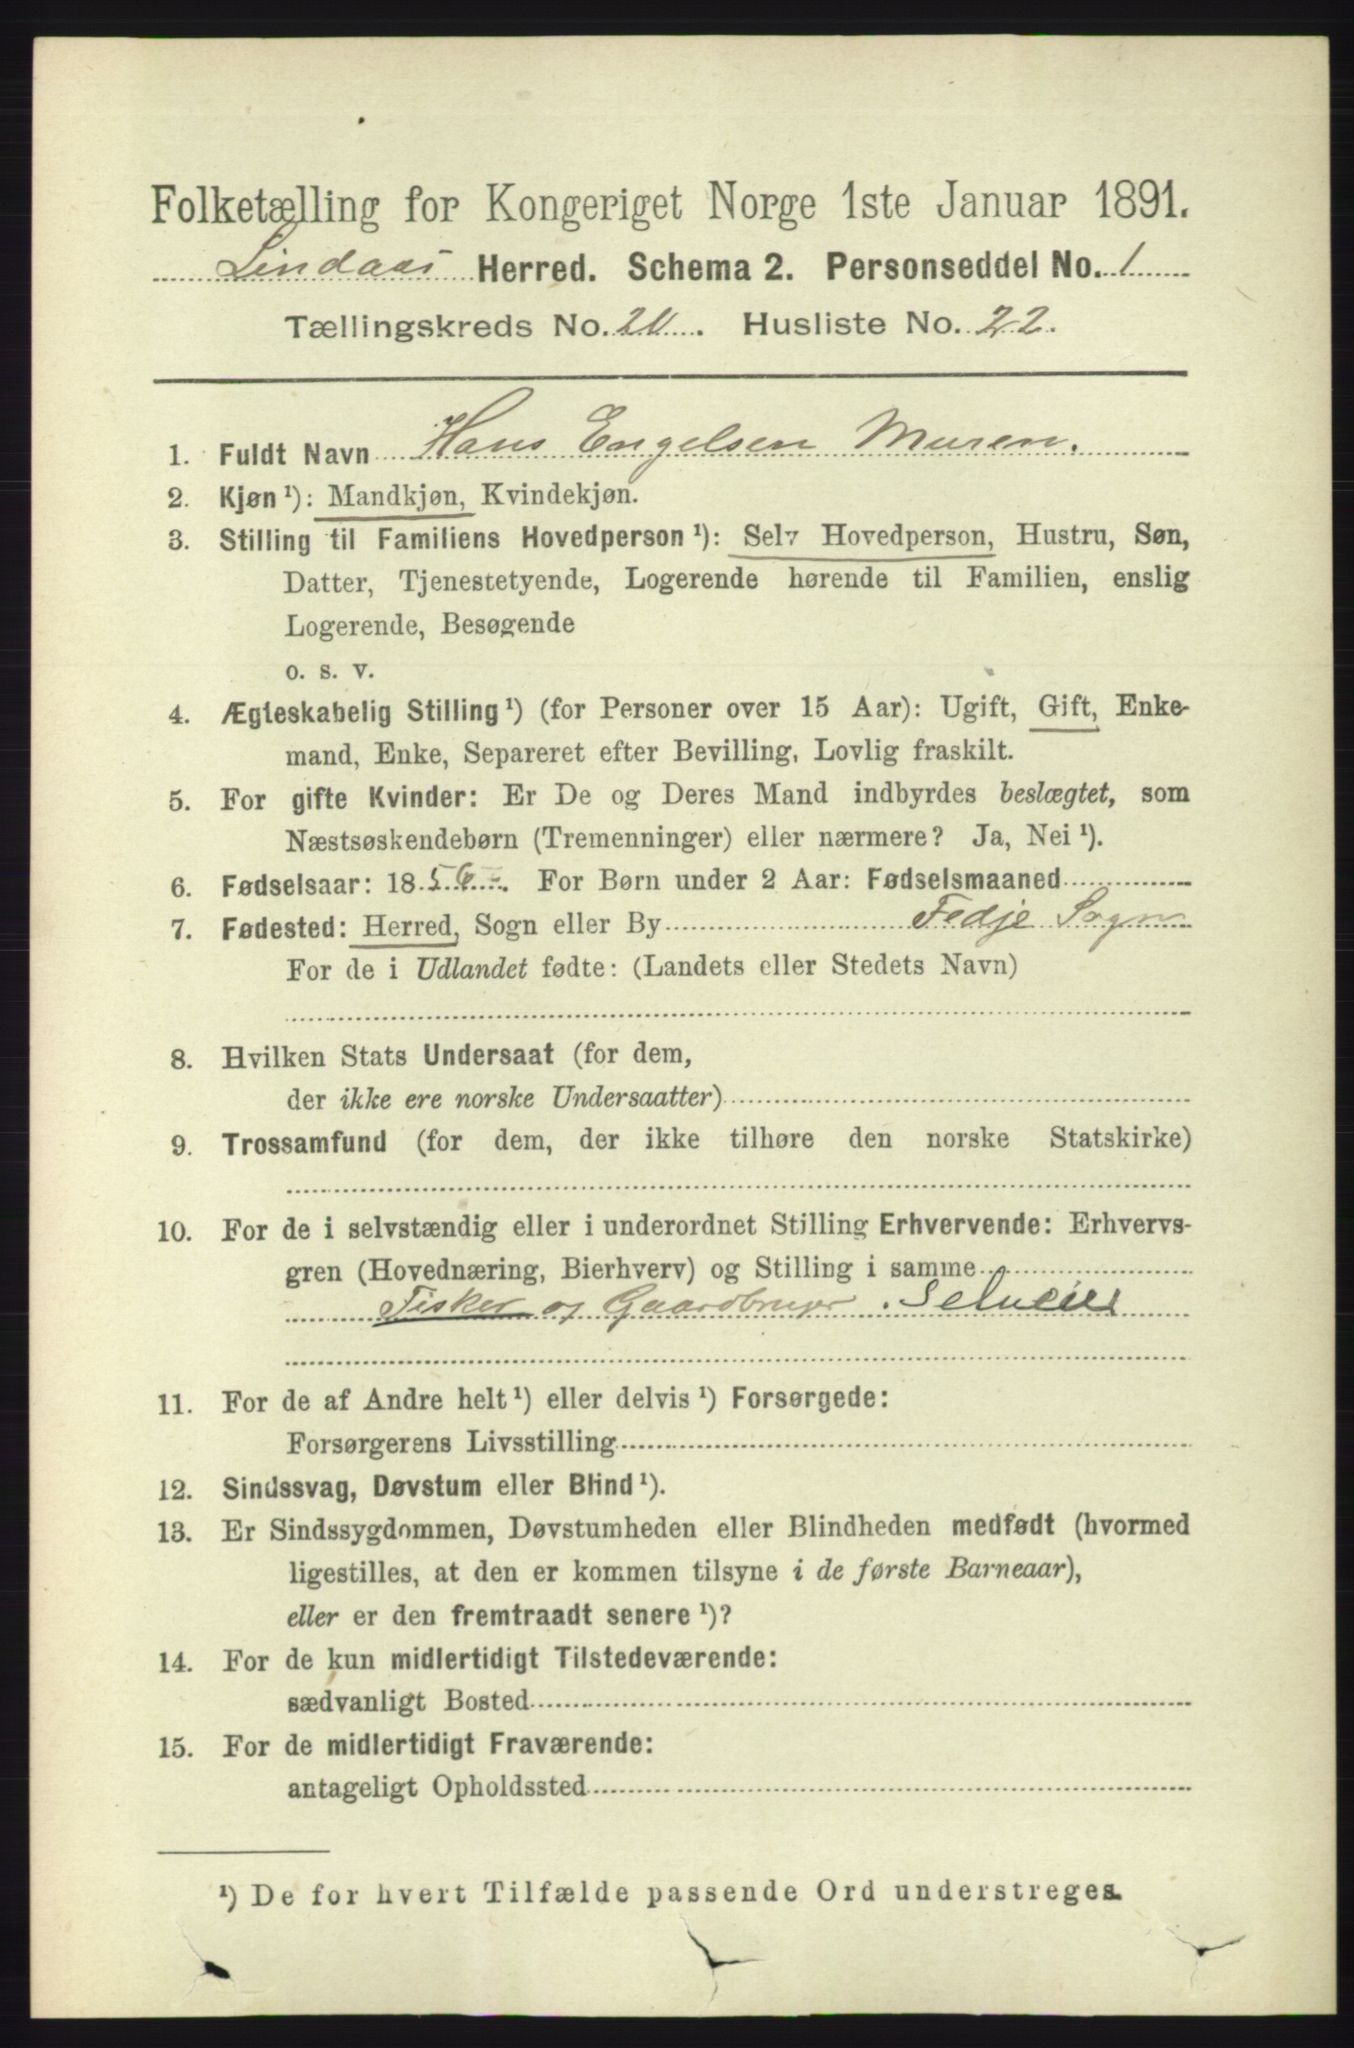 Folketælling for Kongeriget Norge 1ste Januar 1891.
Lindaas Herred. Schema 2. Personseddel No. 1
Tællingskreds No. 20. Husliste No. 22.
1. Fuldt Navn Hans Engelsen Muren.
2. Kjøn¹): Mandkjøn, Kvindekjøn.
3. Stilling til Familiens Hovedperson¹): Selv Hovedperson, Hustru, Søn,
Datter, Tjenestetyende, Logerende hørende til Familien, enslig
Logerende, Besøgende
o. s. v.
4. Ægteskabelig Stilling¹) (for Personer over 15 Aar): Ugift, Gift, Enke-
mand, Enke, Separeret efter Bevilling, Lovlig fraskilt.
5. For gifte Kvinder: Er De og Deres Mand indbyrdes beslægtet, som
Næstsøskendebørn (Tremenninger) eller nærmere? Ja, Nei¹).
6. Fødselsaar: 1856. For Børn under 2 Aar: Fødselsmaaned
7. Fødested: Herred, Sogn eller By Fedje Sogn
For de i Udlandet fødte: (Landets eller Stedets Navn)
8. Hvilken Stats Undersaat (for dem,
der ikke ere norske Undersaatter)
9. Trossamfund (for dem, der ikke tilhøre den norske Statskirke)
10. For de i selvstændig eller i underordnet Stilling Erhvervende: Erhvervs-
gren (Hovednæring, Bierhverv) og Stilling i samme
Fisker og Gaardbruger. Selveier
11. For de af Andre helt¹) eller delvis¹) Forsørgede:
Forsørgerens Livsstilling
12. Sindssvag, Døvstum eller Blind¹).
13. Er Sindssygdommen, Døvstumheden eller Blindheden medfødt (hvormed
ligestilles, at den er kommen tilsyne i de første Barneaar),
eller er den fremtraadt senere¹)?
14. For de kun midlertidigt Tilstedeværende:
sædvanligt Bosted
15. For de midlertidigt Fraværende:
antageligt Opholdssted
¹) De for hvert Tilfælde passende Ord understreges.